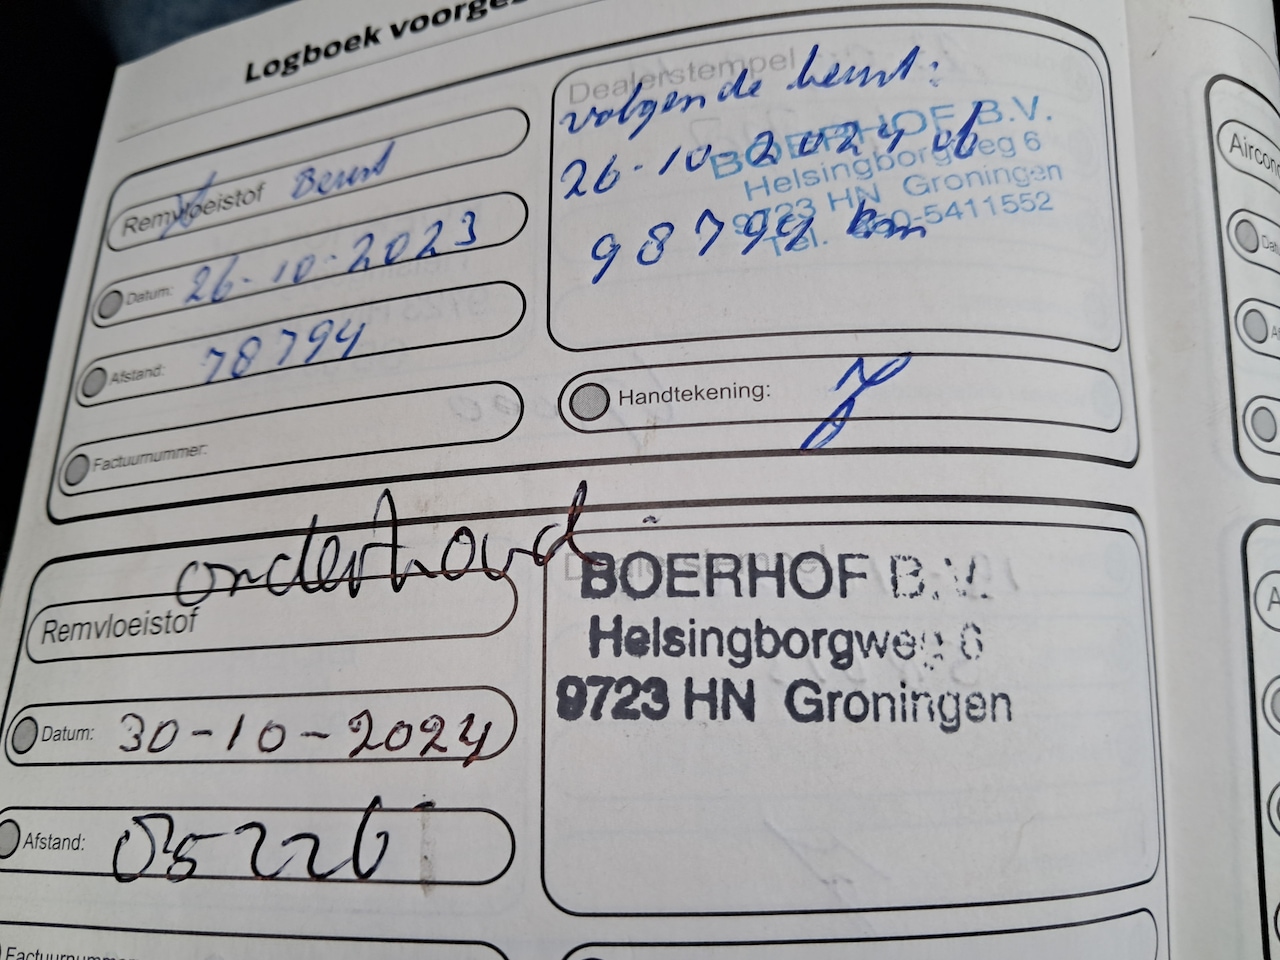 Logboek voorge
Remvloeistof Beurt
Datum: 26-10-2023
Afstand: 78794
Factuurnummer:
Dealerstempel
volgende beurt:
26-10-2024 of
98794 km
BOERHOF B.V.
Helsingborgweg 6
9723 HN Groningen
Tel. 050-5411552
Handtekening:
onderhoud
Remvloeistof
Datum: 30-10-2024
Afstand:
Factuurnummer
Dealerstempel
BOERHOF B.V.
Helsingborgweg 6
9723 HN Groningen
Aircon
Dat
A
A